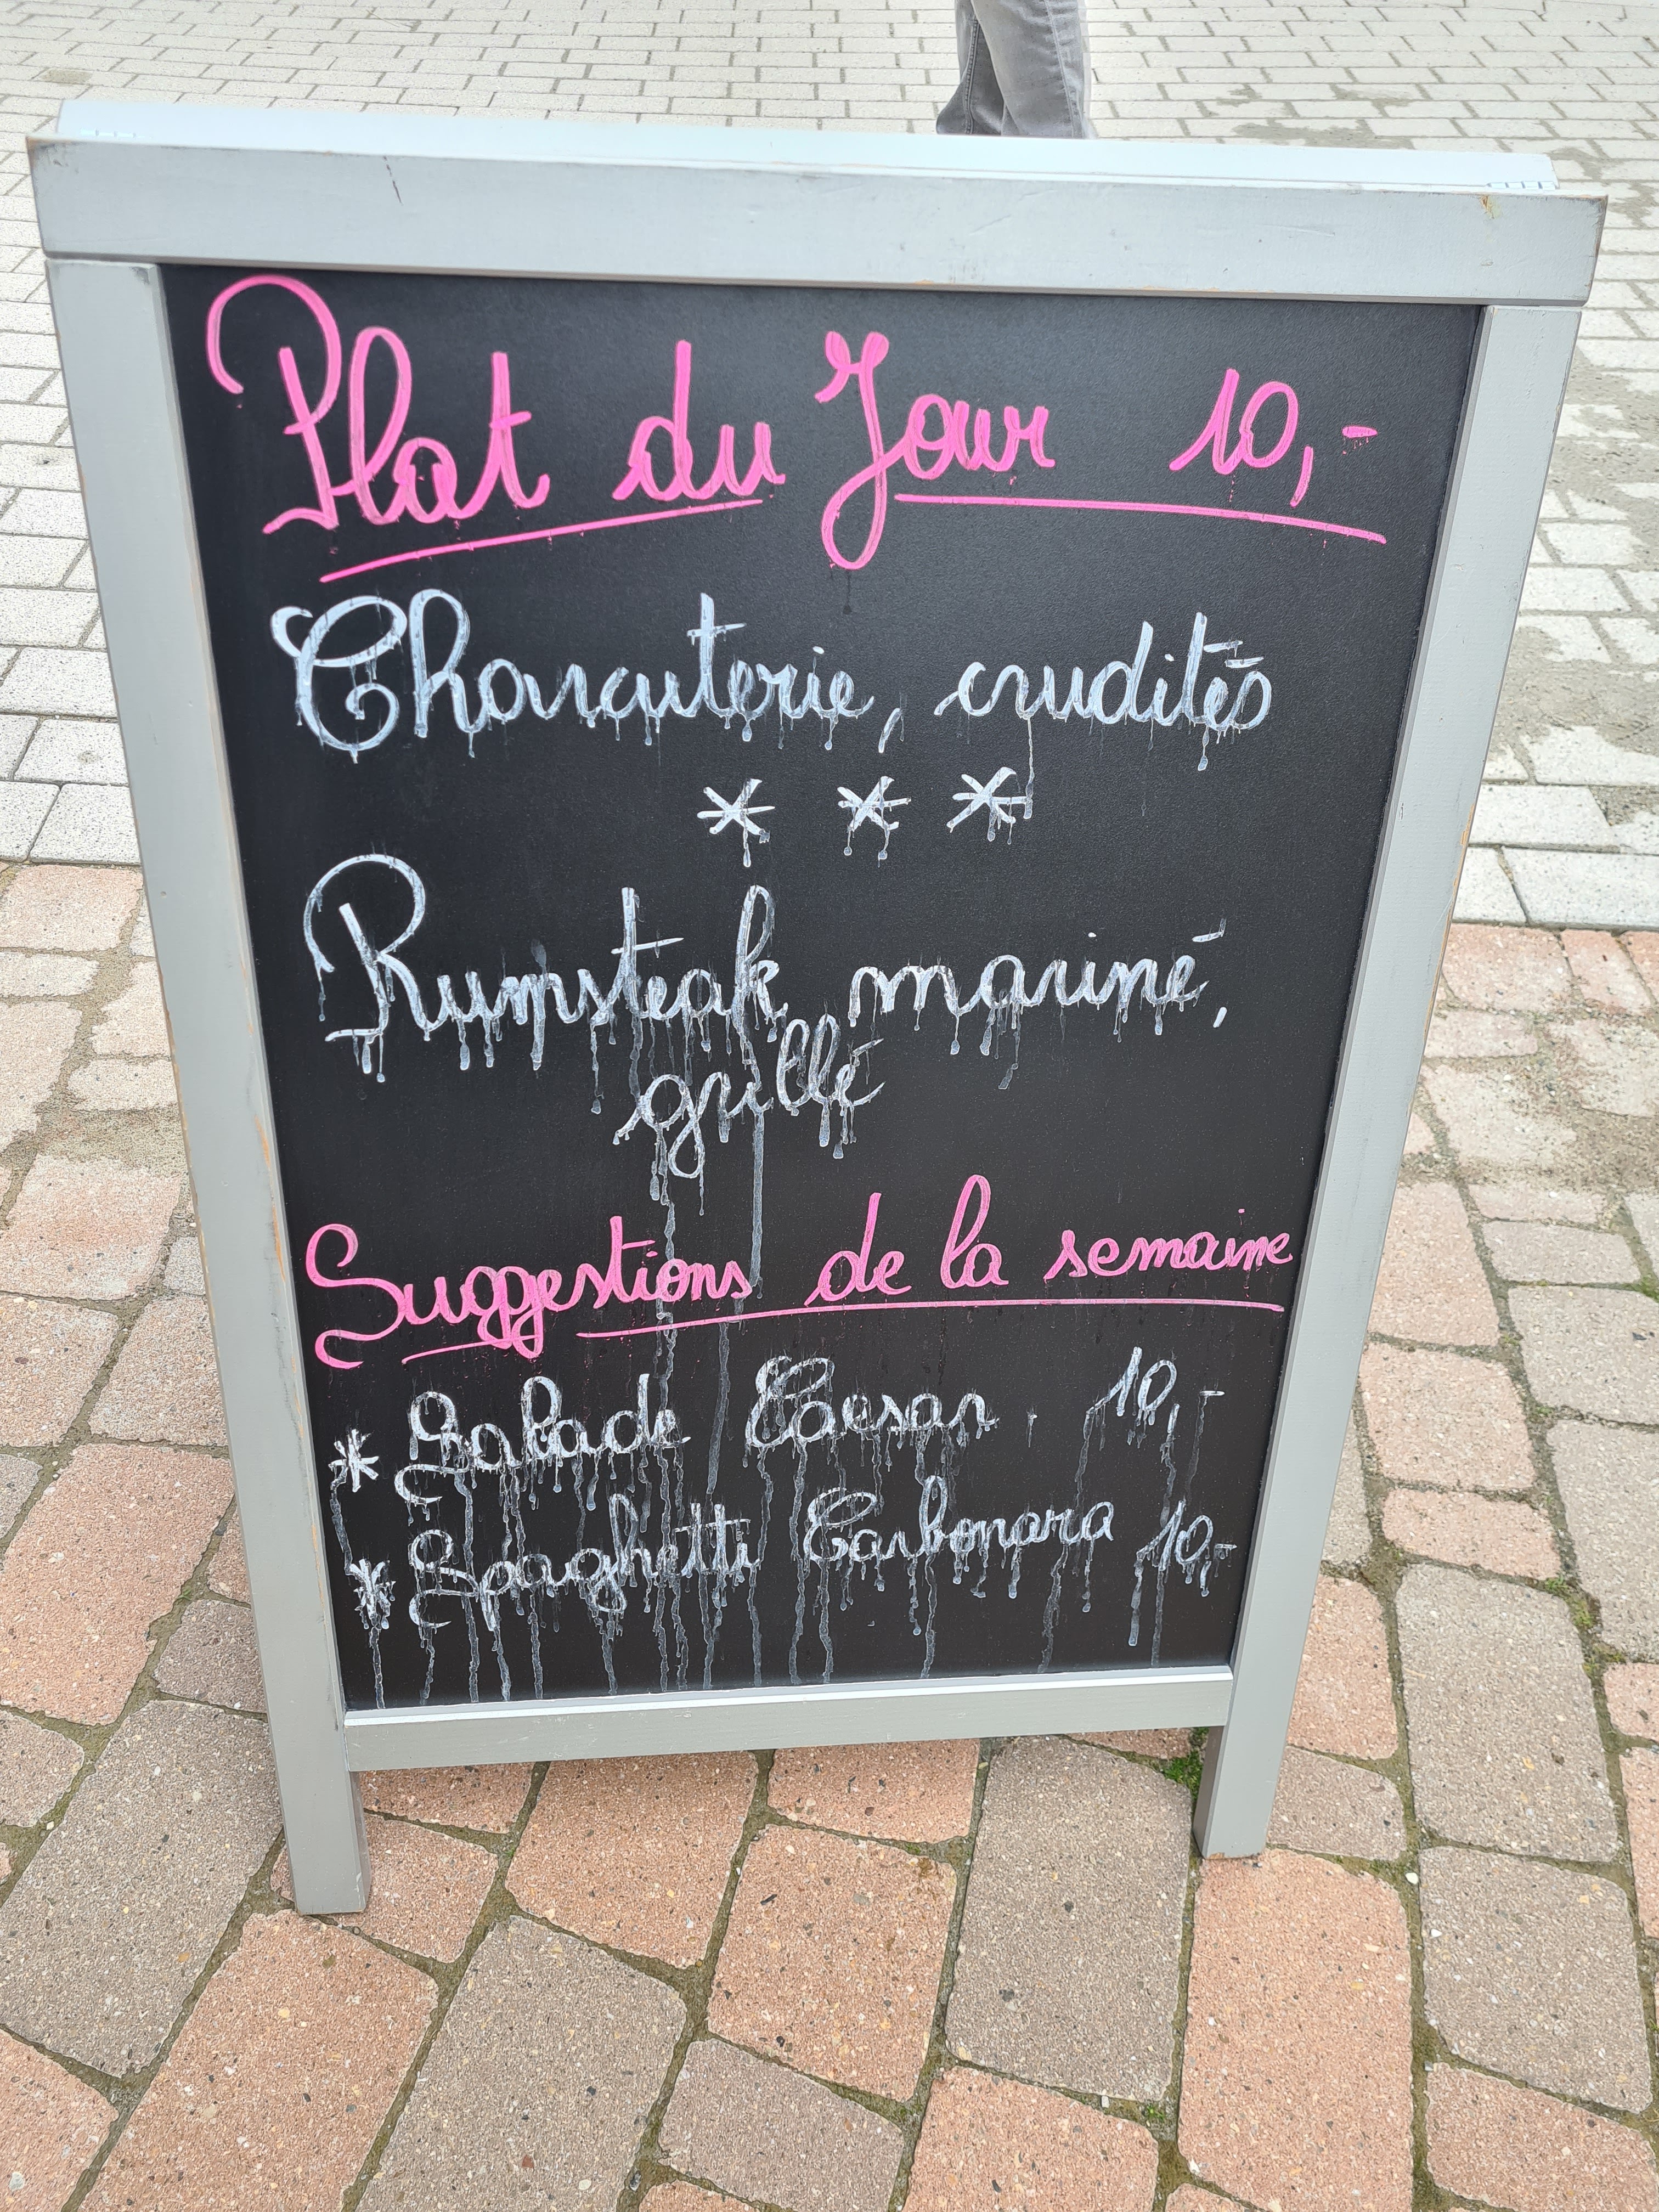 Plat du Jour 10,-
Charcuterie, crudités
* * *
Rumpsteak mariné,
grillé
Suggestions de la semaine
* Salade Caesar 10,-
* Spaghetti Carbonara 10,-